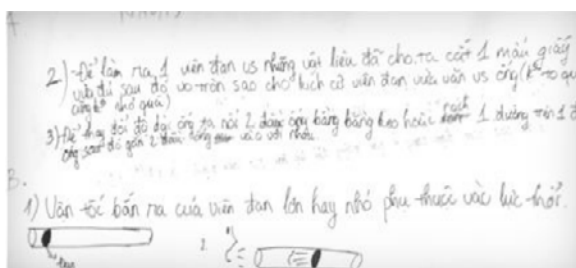 A.
2) -Để làm ra 1 viên đạn vs những vật liệu đã cho, ta cắt 1 mẩu giấy
vừa đủ sau đó vo tròn sao cho kích cỡ viên đạn vừa vặn vs ống (k° to quá
cũng k° nhỏ quá)
3) Để thay đổi độ dài ống ta nối 2 đầu ống bằng băng keo hoặc 1 đường trên 1
ống sau đó gắn 2 đầu ống vào với nhau
B.
1) Vận tốc bắn ra của viên đạn lớn hay nhỏ phụ thuộc vào lực thổi.
2.